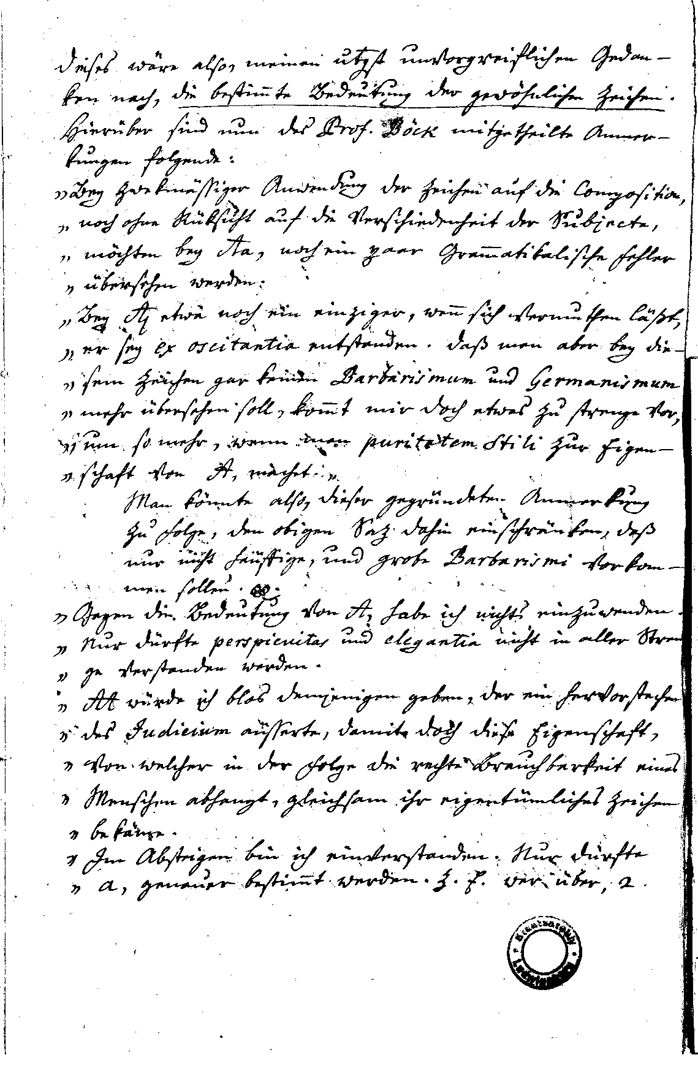 dieses wäre also, meinen utgst unvorgreiflichen Gedan-
ken nach, die bestimte Bedeutung der gewöhnlichen Zeichen.
Hierüber sind nun des Prof. Böck mitgetheilte Anmer-
kungen folgende:
„Bey zwekmässiger Anwendung der Zeichen auf die Composition,
„noch ohne Rüksicht auf die Verschiedenheit der Subjecte,
„möchten bey Aa, noch ein paar Grammatikalische Fehler
„übersehen werden:
„Bey A, etwa noch ein einziger, wenn sich vermuthen läßt,
„er sey ex oscitantia entstanden. Daß man aber bey die-
„sem Zeichen gar keinen Barbarismum und Germanismum
„mehr übersehen soll, komt mir doch etwas zu strenge vor,
„um so mehr, wenn man puritatem Stili zur Eigen-
„schaft von A, machet.„
Man könnte also, dieser gegründeten Anmerkung
zu folge, den obigen Saz dahin einschränken, daß
nur nicht häuffige, und grobe Barbarismi vorkom-
men sollen.
„Gegen die Bedeutung von A, habe ich nichts einzuwenden.
„Nur dürfte perspicuitas und elegantia nicht in aller Stren
„ge verstanden werden.
„AA würde ich blos demjenigen geben, der ein hervorstechen
„des Judicium äusserte, damit doch diese Eigenschaft,
„von welcher in der Folge die rechte Brauchbarkeit eines
„Menschen abhangt, gleichsam ihr eigentümliches Zeichen
„bekäme.
„Im Absteigen bin ich einverstanden. Nur dürfte
„a, genauer bestimt werden. Z. E. wer über, 2.
Staatsarchiv
Ludwigsburg